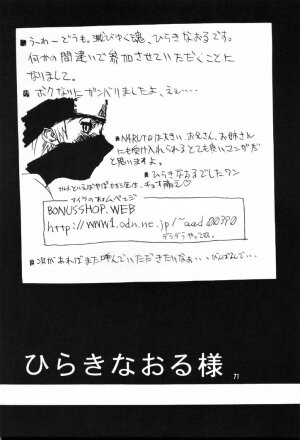 うーわーどうも。滅びゆく魂、ひらきなおるです。
何かの間違いで参加させていただくことに
なりました。
ボクなりにガンバリましたよ、ええ…
NARUTOは大きいお兄さん、お姉さん
にも受け入れられるとても良いマンガだ
と思いますよ。
ひらきなおるでしたワン
BONUSSHOP.WEB
http://www1.odn.ne.jp/~aad00390
ダラダラやってます。
次があればまた呼んでいただきたいなぁ・・・がんばるんで・・
ひらきなおる様
71